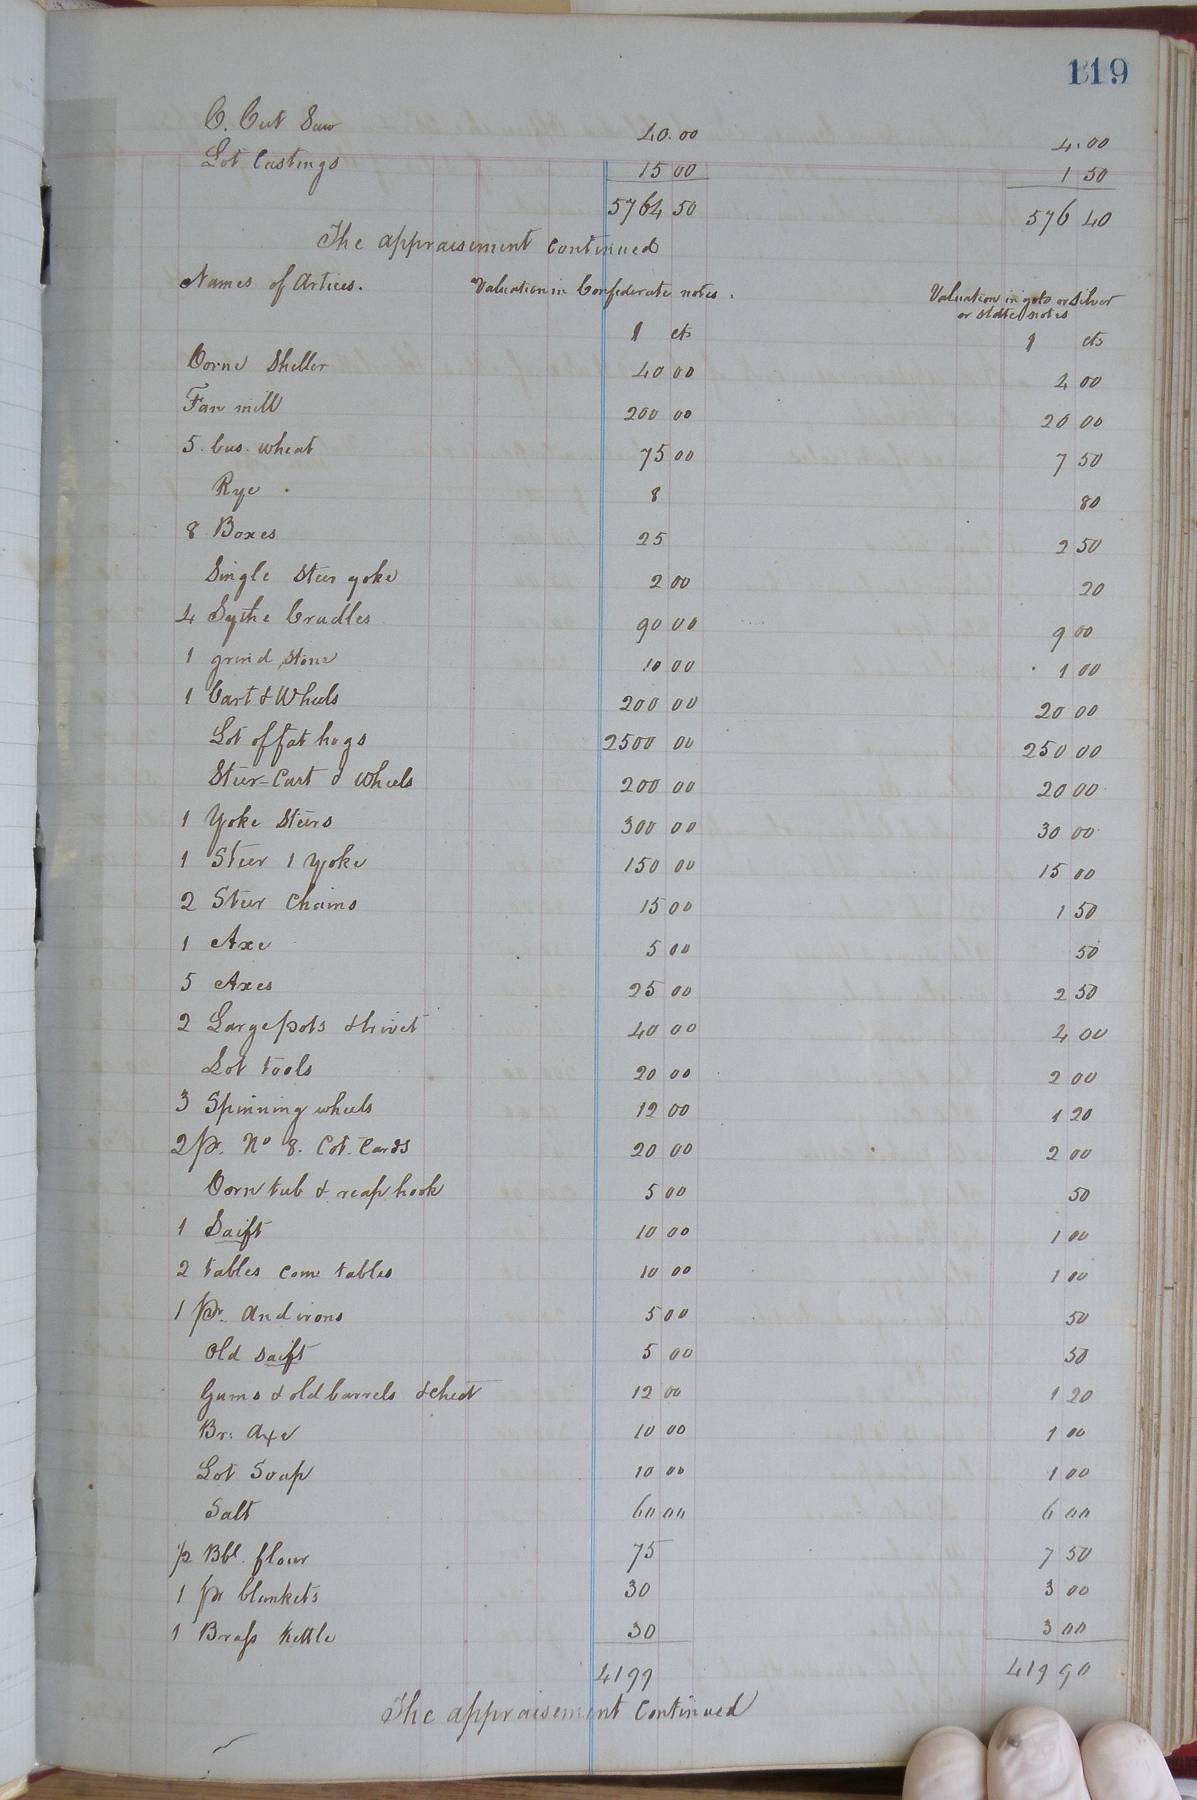 119
C. Cut Saw 40.00 4.00
Lot Castings 15 00 1 50
5764 50 576 40
The appraisement continued
Names of Artices. Valuation in Confederate notes. Valuation in gold or silver
or state notes
$ cts $ cts
Corne Sheller 40 00 4 00
Fan mill 200 00 20 00
5. bus. wheat 75 00 7 50
Rye. 8 80
8 Boxes 25 2 50
Single Steer yoke 2 00 20
4 Sythe Cradles 90 00 9 00
1 grind stone 10 00 1 00
1 Cart & Wheels 200 00 20 00
Lot of fat hogs 2500 00 250 00
Steer-Cart & wheels 200 00 20 00
1 Yoke Steers 300 00 30 00
1 Steer 1 Yoke 150 00 15 00
2 Steer Chains 15 00 1 50
1 Axe 5 00 50
5 Axes 25 00 2 50
2 Large pots & 40 00 4 00
Lot tools 20 00 2 00
3 Spinning wheels 12 00 1 20
2 pr. No 8. Cot. Cards 20 00 2 00
Corn tub & reap hook 5 00 50
1 Saift 10 00 1 00
2 tables com tables 10 00 1 00
1 pr. andirons 5 00 50
Old saift 5 00 50
Gums & old barrels & chest 12 00 1 20
Br: Axe 10 00 1 00
Lot Soap 10 00 1 00
Salt 60 00 6 00
Bbl. flour 75 7 50
1 pr blankets 30 3 00
1 Brass Kettle 30 3 00
4199 419 90
The appraisement Continued